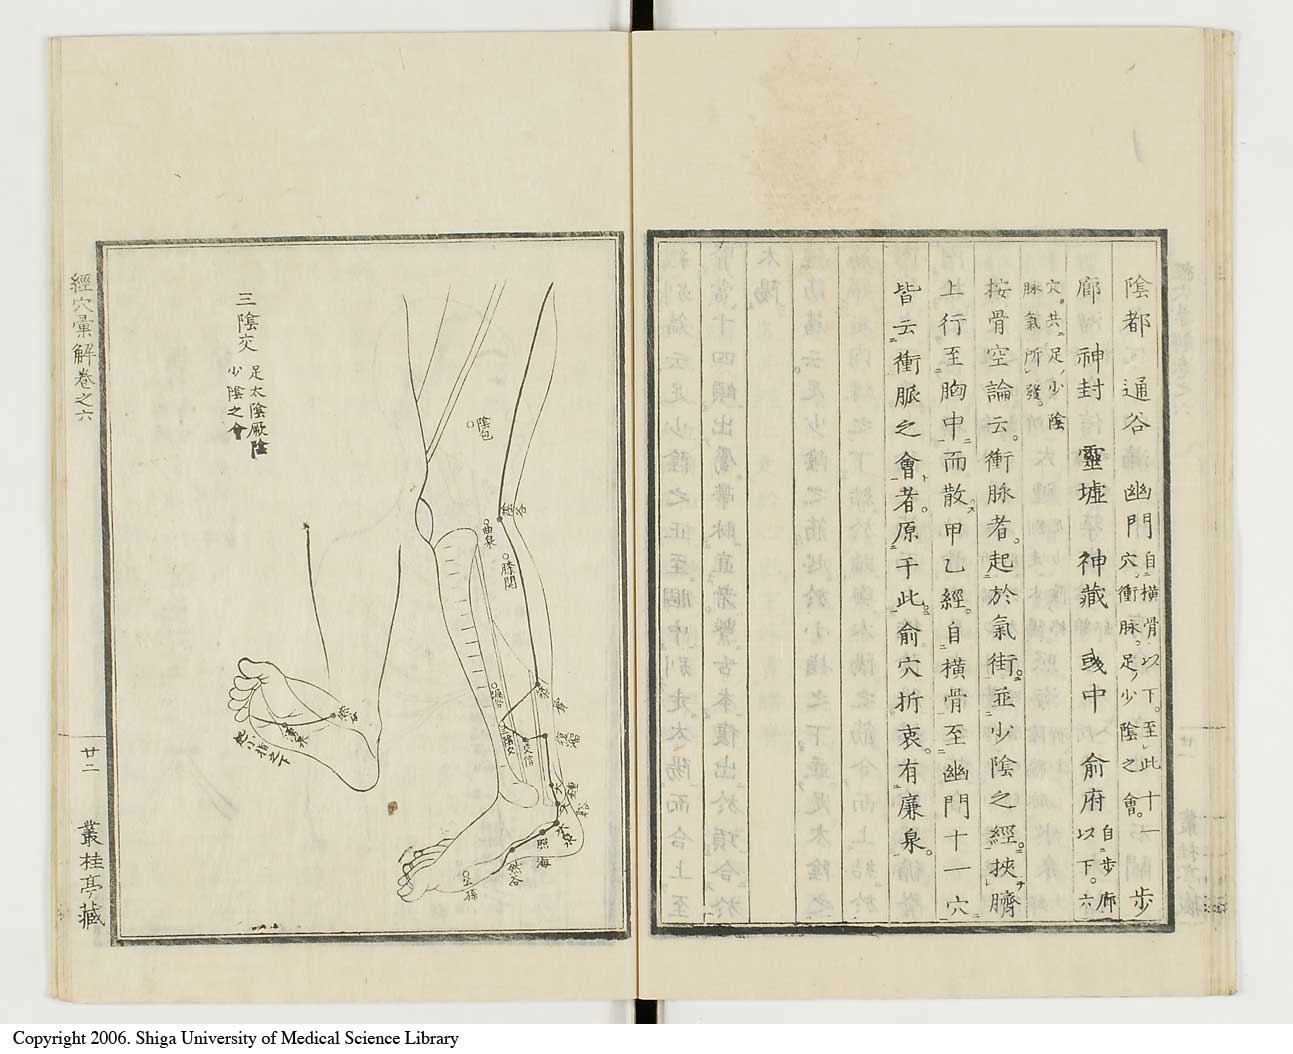 陰都 通谷 幽門 自橫骨以下至此十一穴衝脉足少陰之會 步
廊 神封 靈墟 神藏 彧中 俞府 自步廊以下六
穴共足少陰脉氣所發
按骨空論云衝脉者起於氣街並少陰之經挾臍
上行至胸中而散甲乙經自橫骨至幽門十一穴
皆云衝脈之會者原于此俞穴折衷有廉泉
經穴彙解卷之六
廿二
叢桂亭藏
三陰交 足太陰厥陰
少陰之會
陰包
陰谷
曲泉
膝關
築賓
漏谷
三陰交
交信
復溜
太谿
大鍾
水泉
照海
然谷
公孫
湧泉
起小指之下
Copyright 2006. Shiga University of Medical Science Library